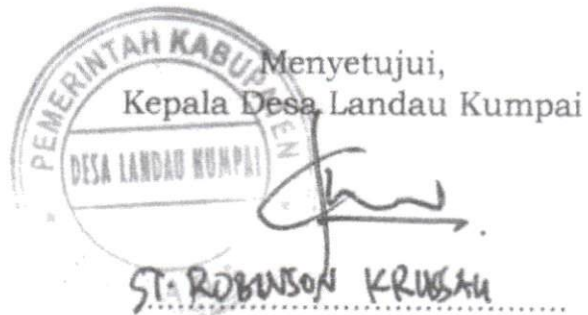 PEMERINTAH KABUPATEN
DESA LANDAU KUMPAI
Menyetujui,
Kepala Desa Landau Kumpai
ST. ROBINSON